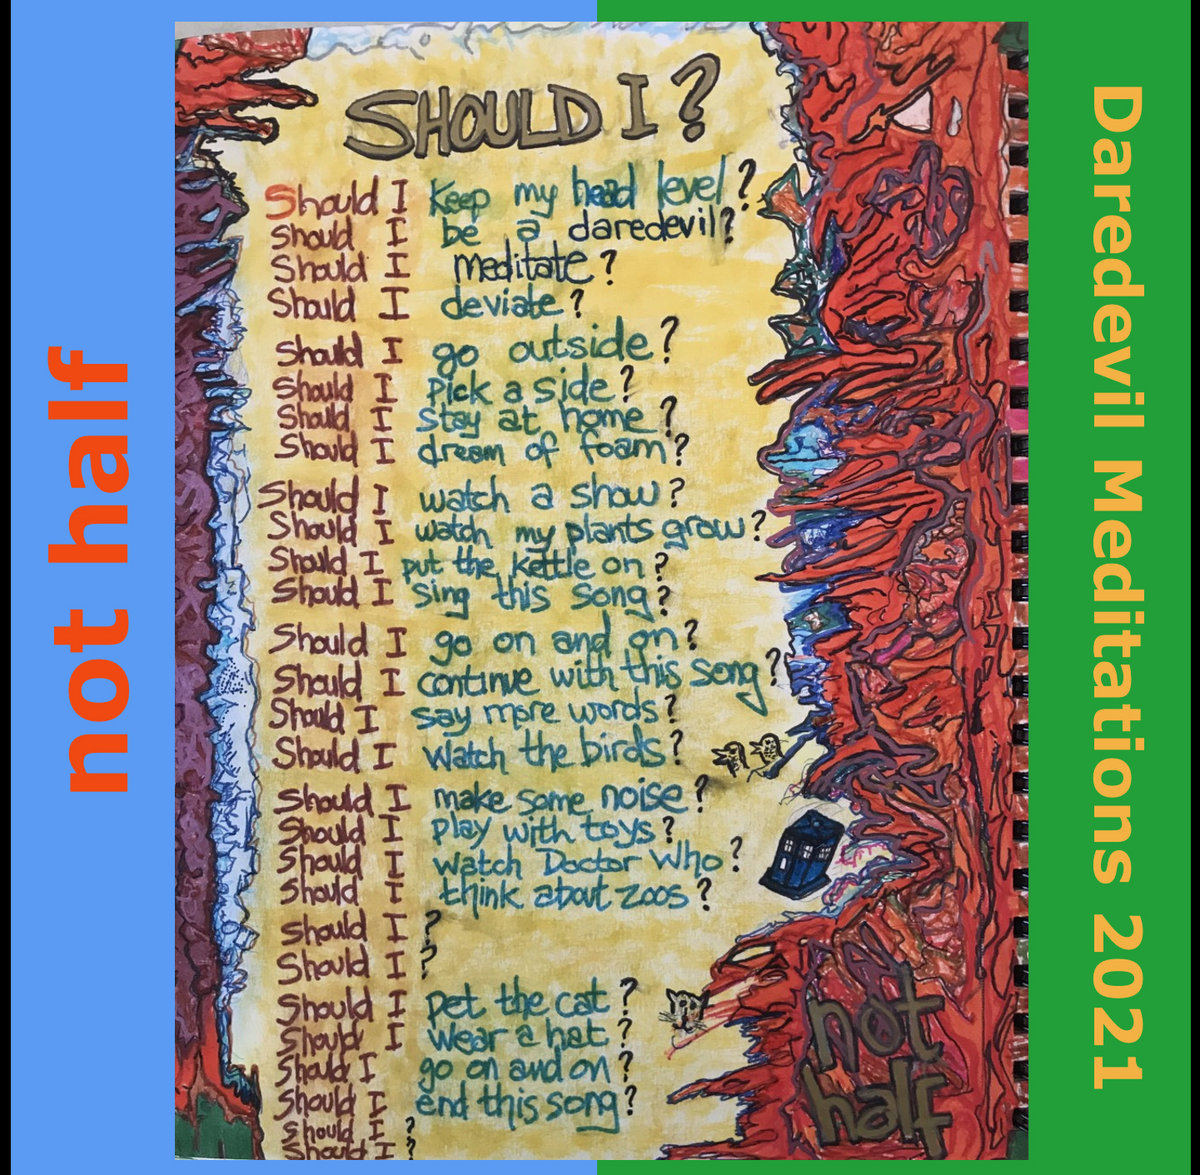 not half
SHOULD I ?
Should I keep my head level?
Should I be a daredevil?
Should I meditate?
Should I deviate?
Should I go outside?
Should I pick a side?
Should I stay at home?
Should I dream of foam?
Should I watch a show?
Should I watch my plants grow?
Should I put the kettle on?
Should I sing this song?
Should I go on and on?
Should I continue with this song?
Should I say more words?
Should I watch the birds?
Should I make some noise?
Should I play with toys?
Should I watch Doctor Who?
Should I think about zoos?
Should I ?
Should I ?
Should I pet the cat?
Should I wear a hat?
Should I go on and on?
Should I end this song?
Should I ?
Should I ?
not
half
Daredevil Meditations 2021